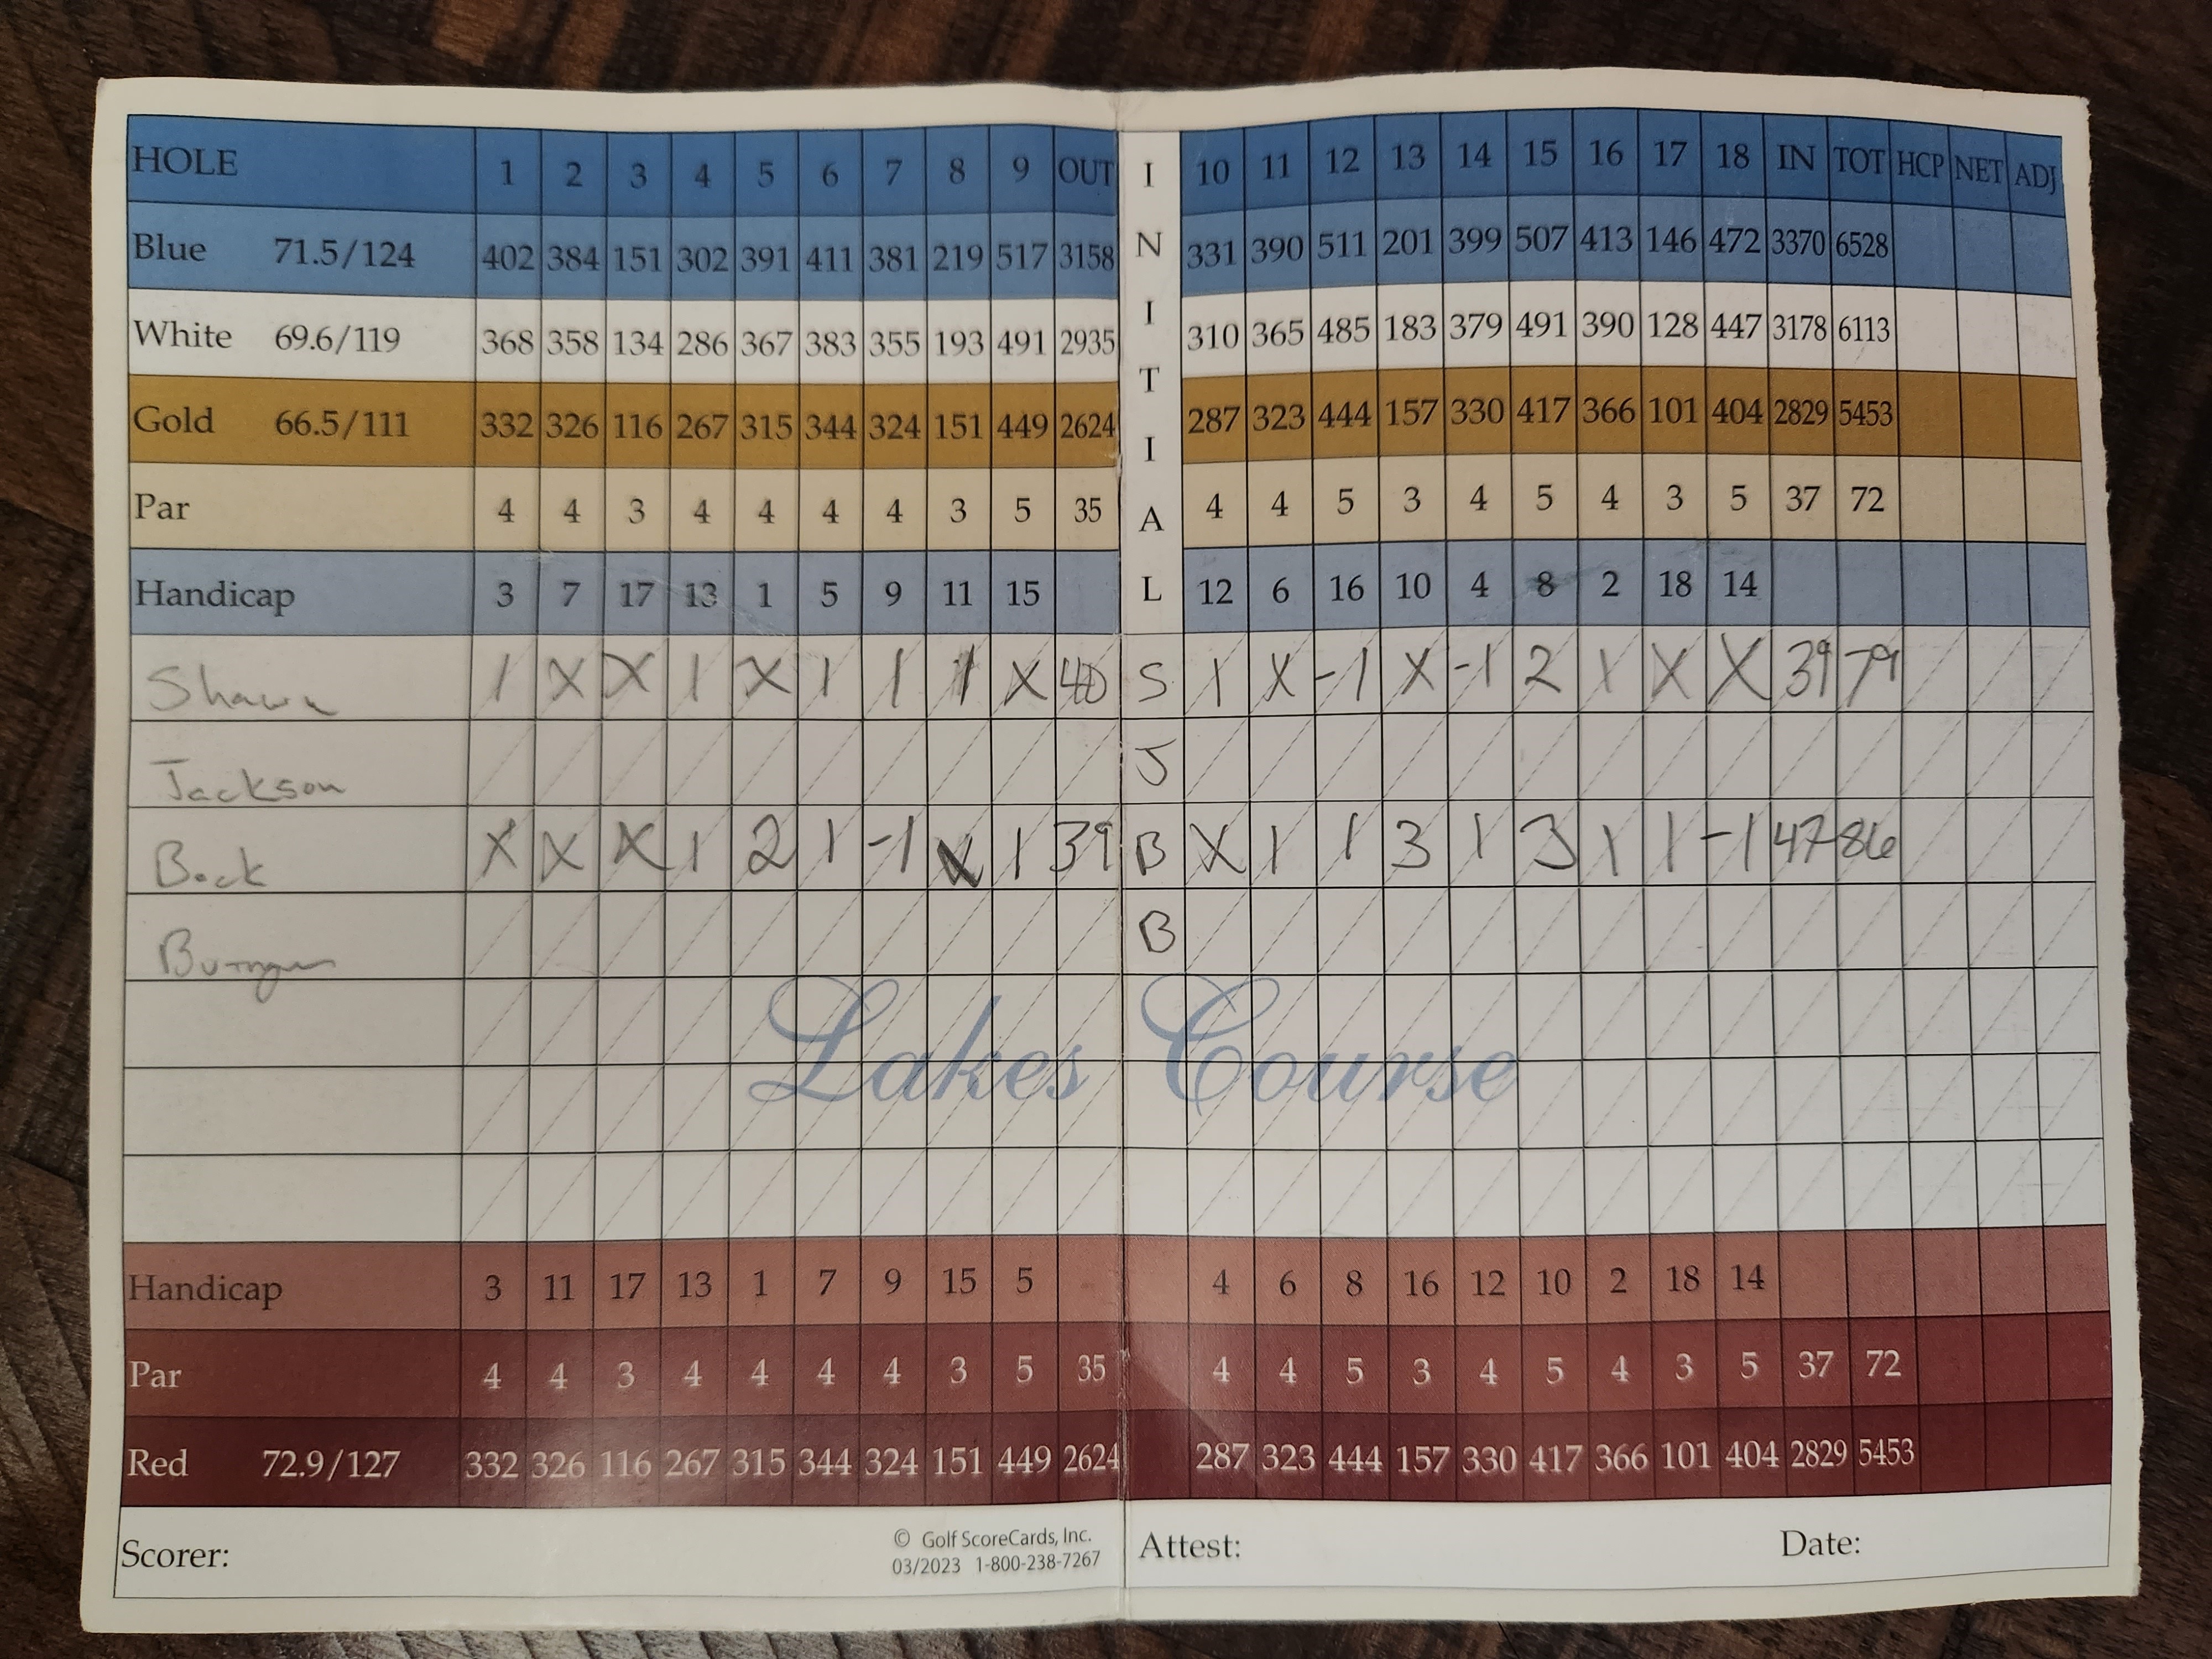 HOLE 1 2 3 4 5 6 7 8 9 OUT INITIAL 10 11 12 13 14 15 16 17 18 IN TOT HCP NET ADJ
Blue 71.5/124 402 384 151 302 391 411 381 219 517 3158 331 390 511 201 399 507 413 146 472 3370 6528
White 69.6/119 368 358 134 286 367 383 355 193 491 2935 310 365 485 183 379 491 390 128 447 3178 6113
Gold 66.5/111 332 326 116 267 315 344 324 151 449 2624 287 323 444 157 330 417 366 101 404 2829 5453
Par 4 4 3 4 4 4 4 3 5 35 4 4 5 3 4 5 4 3 5 37 72
Handicap 3 7 17 13 1 5 9 11 15 12 6 16 10 4 8 2 18 14
Shawn 1 X X 1 X 1 1 1 X 40 S 1 X -1 X -1 2 1 X X 39 79
Jackson J
Bock X X X 1 2 1 -1 X 1 39 B X 1 1 3 1 3 1 1 -1 47 86
B
Lakes Course
Handicap 3 11 17 13 1 7 9 15 5 4 6 8 16 12 10 2 18 14
Par 4 4 3 4 4 4 4 3 5 35 4 4 5 3 4 5 4 3 5 37 72
Red 72.9/127 332 326 116 267 315 344 324 151 449 2624 287 323 444 157 330 417 366 101 404 2829 5453
Scorer: © Golf ScoreCards, Inc. Attest: Date:
03/2023 1-800-238-7267